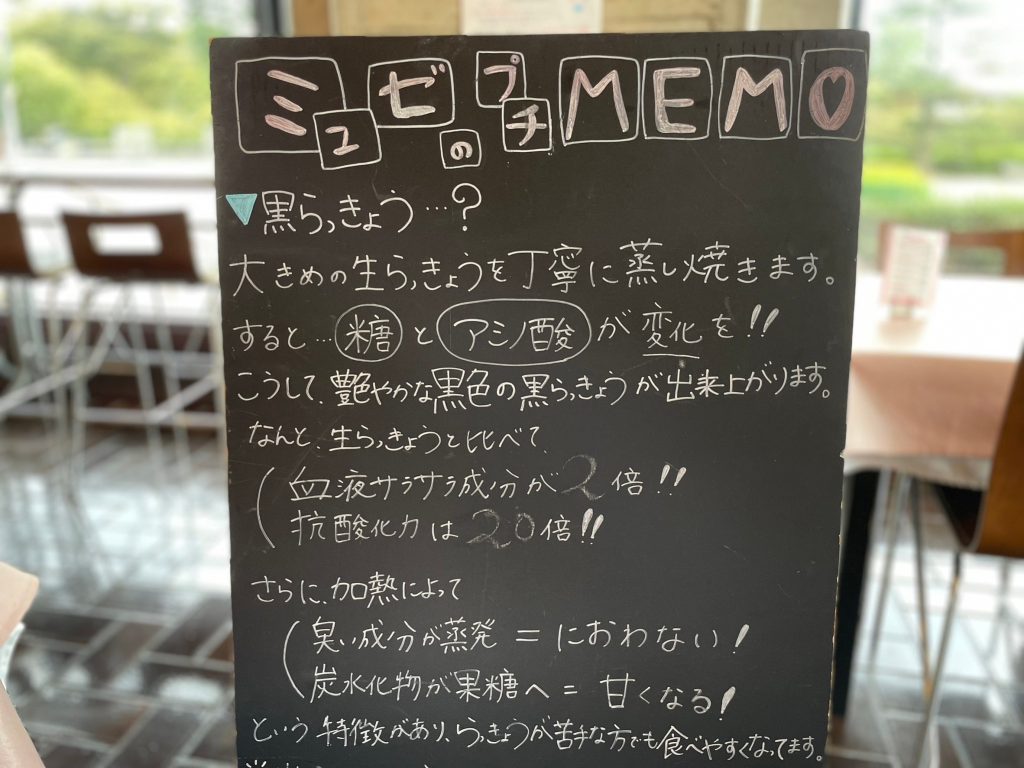 ミュゼのプチMEMO♡
▼黒らっきょう…?
大きめの生らっきょうを丁寧に蒸し焼きます。
すると…糖とアミノ酸が変化を!!
こうして、艶やかな黒色の黒らっきょうが出来上がります。
なんと、生らっきょうと比べて
血液サラサラ成分が2倍!!
抗酸化力は20倍!!
さらに、加熱によって
臭い成分が蒸発=におわない!
炭水化物が果糖へ=甘くなる!
という特徴があり、らっきょうが苦手な方でも食べやすくなってます。